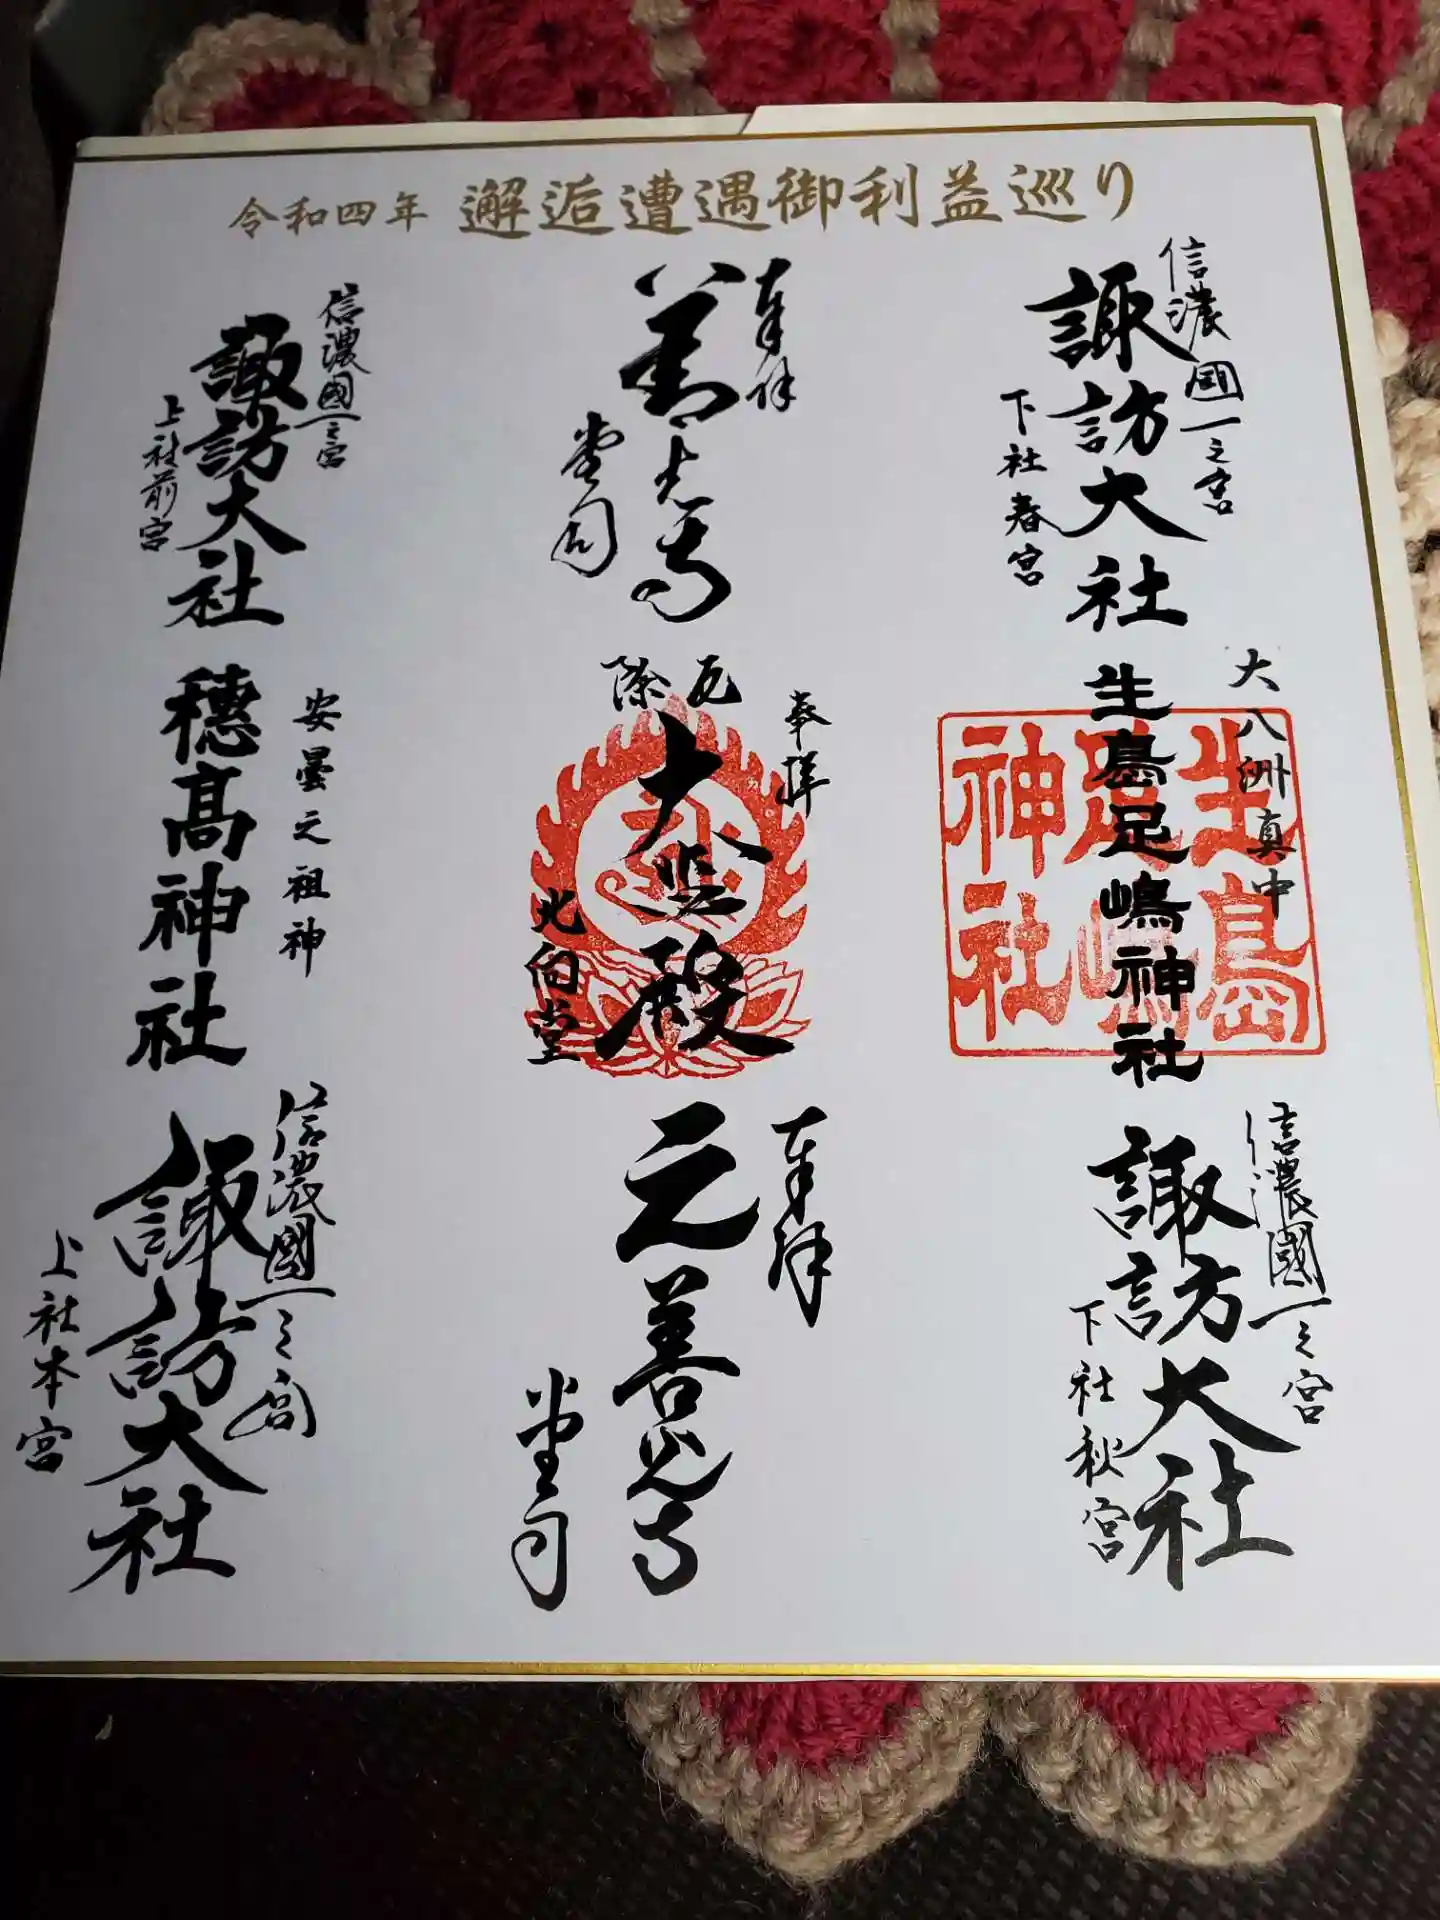 令和四年 邂逅遭遇御利益巡り
信濃國一之宮
諏訪大社
下社春宮
奉拝
善光寺
堂司
信濃國一之宮
諏訪大社
上社前宮
大八洲真中
生島足嶋神社
生島
足嶋
神社
奉拝
厄除
大悲殿
北向堂
安曇之祖神
穂高神社
信濃國一之宮
諏訪大社
下社秋宮
奉拝
元善光寺
堂司
信濃國一之宮
諏訪大社
上社本宮